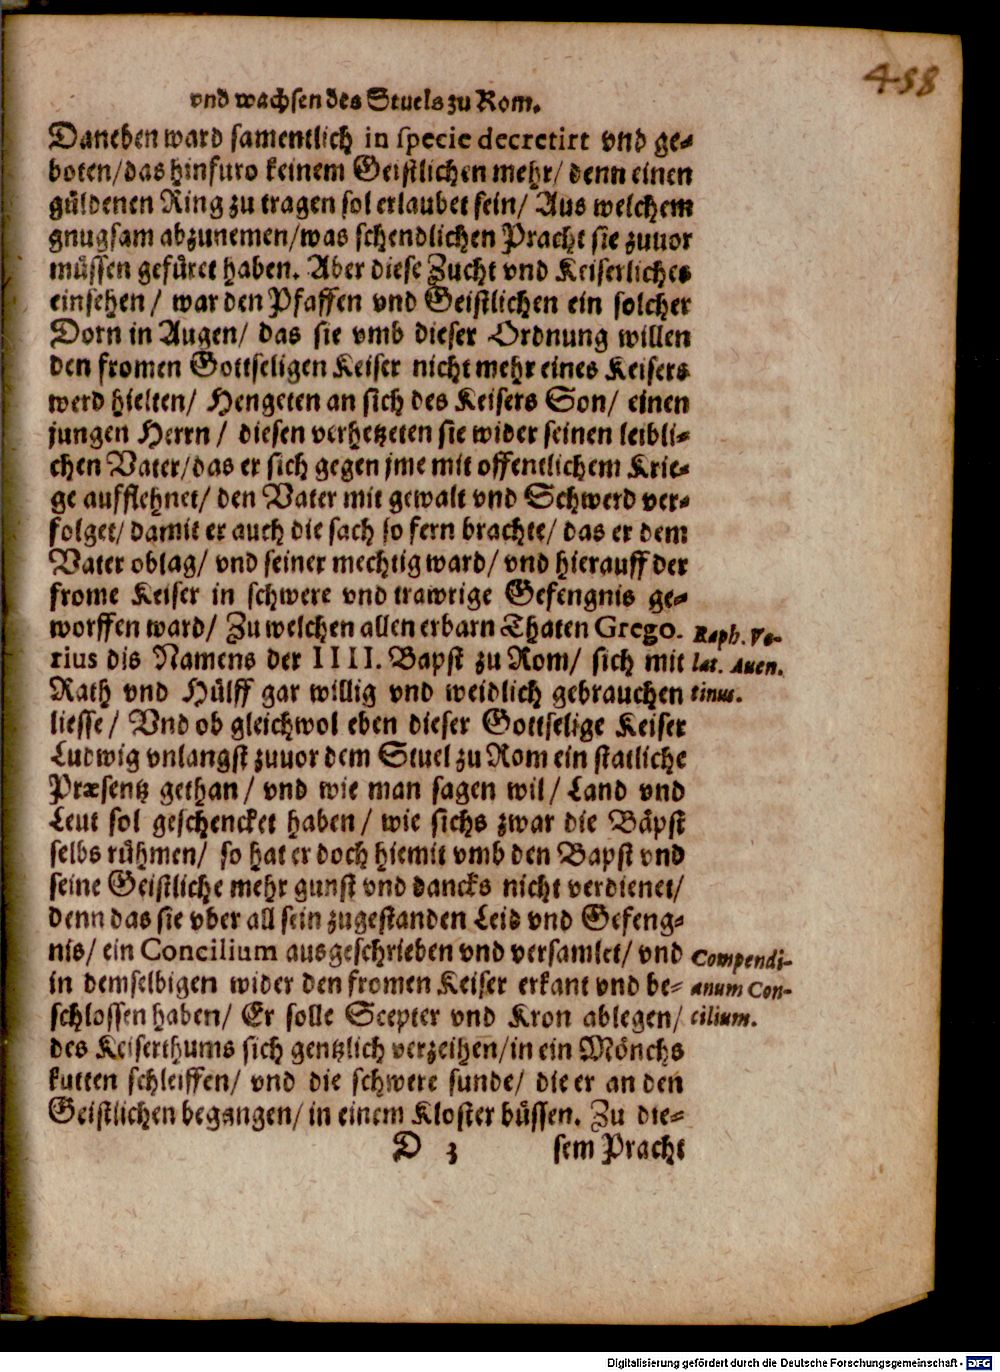 458
vnd wachsen des Stuels zu Rom.
Daneben ward samentlich in specie decretirt vnd ge-
boten/das hinfuro keinem Geistlichen mehr/ denn einen
güldenen Ring zu tragen sol erlaubet sein/ Aus welchem
gnugsam abzunemen/was schendlichen Pracht sie zuuor
müssen gefüret haben. Aber diese Zucht vnd Keiserliches
einsehen/ war den Pfaffen vnd Geistlichen ein solcher
Dorn in Augen/ das sie vmb dieser Ordnung willen
den fromen Gottseligen Keiser nicht mehr eines Keisers
werd hielten/ Hengeten an sich des Keisers Son/ einen
jungen Herrn/ diesen verhetzeten sie wider seinen leibli-
chen Vater/das er sich gegen jme mit offentlichem Krie-
ge aufflehnet/ den Vater mit gewalt vnd Schwerd ver-
folget/ damit er auch die sach so fern brachte/ das er dem
Vater oblag/ vnd seiner mechtig ward/ vnd hierauff der
frome Keiser in schwere vnd trawrige Gefengnis ge-
worffen ward/ Zu welchen allen erbarn Thaten Grego.
rius dis Namens der IIII. Bapst zu Rom/ sich mit
Rath vnd Hülff gar willig vnd weidlich gebrauchen
liesse/ Vnd ob gleichwol eben dieser Gottselige Keiser
Ludwig vnlangst zuuor dem Stuel zu Rom ein statliche
Præsentz gethan/ vnd wie man sagen wil/ Land vnd
Leut sol geschencket haben/ wie sichs zwar die Bäpst
selbs rühmen/ so hat er doch hiemit vmb den Bapst vnd
seine Geistliche mehr gunst vnd dancks nicht verdienet/
denn das sie vber all sein zugestanden Leid vnd Gefeng-
nis/ ein Concilium ausgeschrieben vnd versamlet/ vnd
in demselbigen wider den fromen Keiser erkant vnd be-
schlossen haben/ Er solle Scepter vnd Kron ablegen/
des Keiserthums sich gentzlich verzeihen/in ein Mönchs
kutten schleiffen/ vnd die schwere sunde/ die er an den
Geistlichen begangen/ in einem Kloster büssen. Zu die-
Raph. Vo-
lat. Auen.
tinus.
Compendi-
anum Con-
cilium.
D 3 sem Pracht
Digitalisierung gefördert durch die Deutsche Forschungsgemeinschaft - DFG